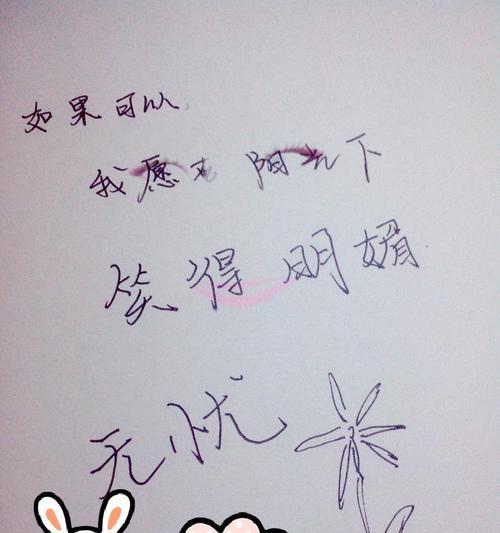 如果可以
我愿 阳光下
笑得明媚
无忧